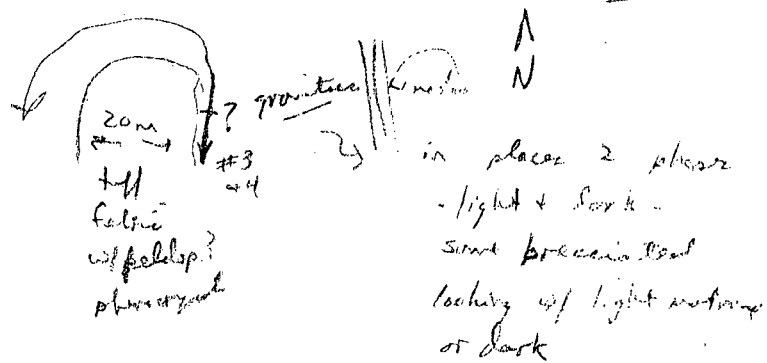 N
20m
?
#3
+4
tuff
felsic
w/ feldsp?
phenocryst
in places 2 phases
- light + dark -
some brecciated
looking w/ light matrix
or dark